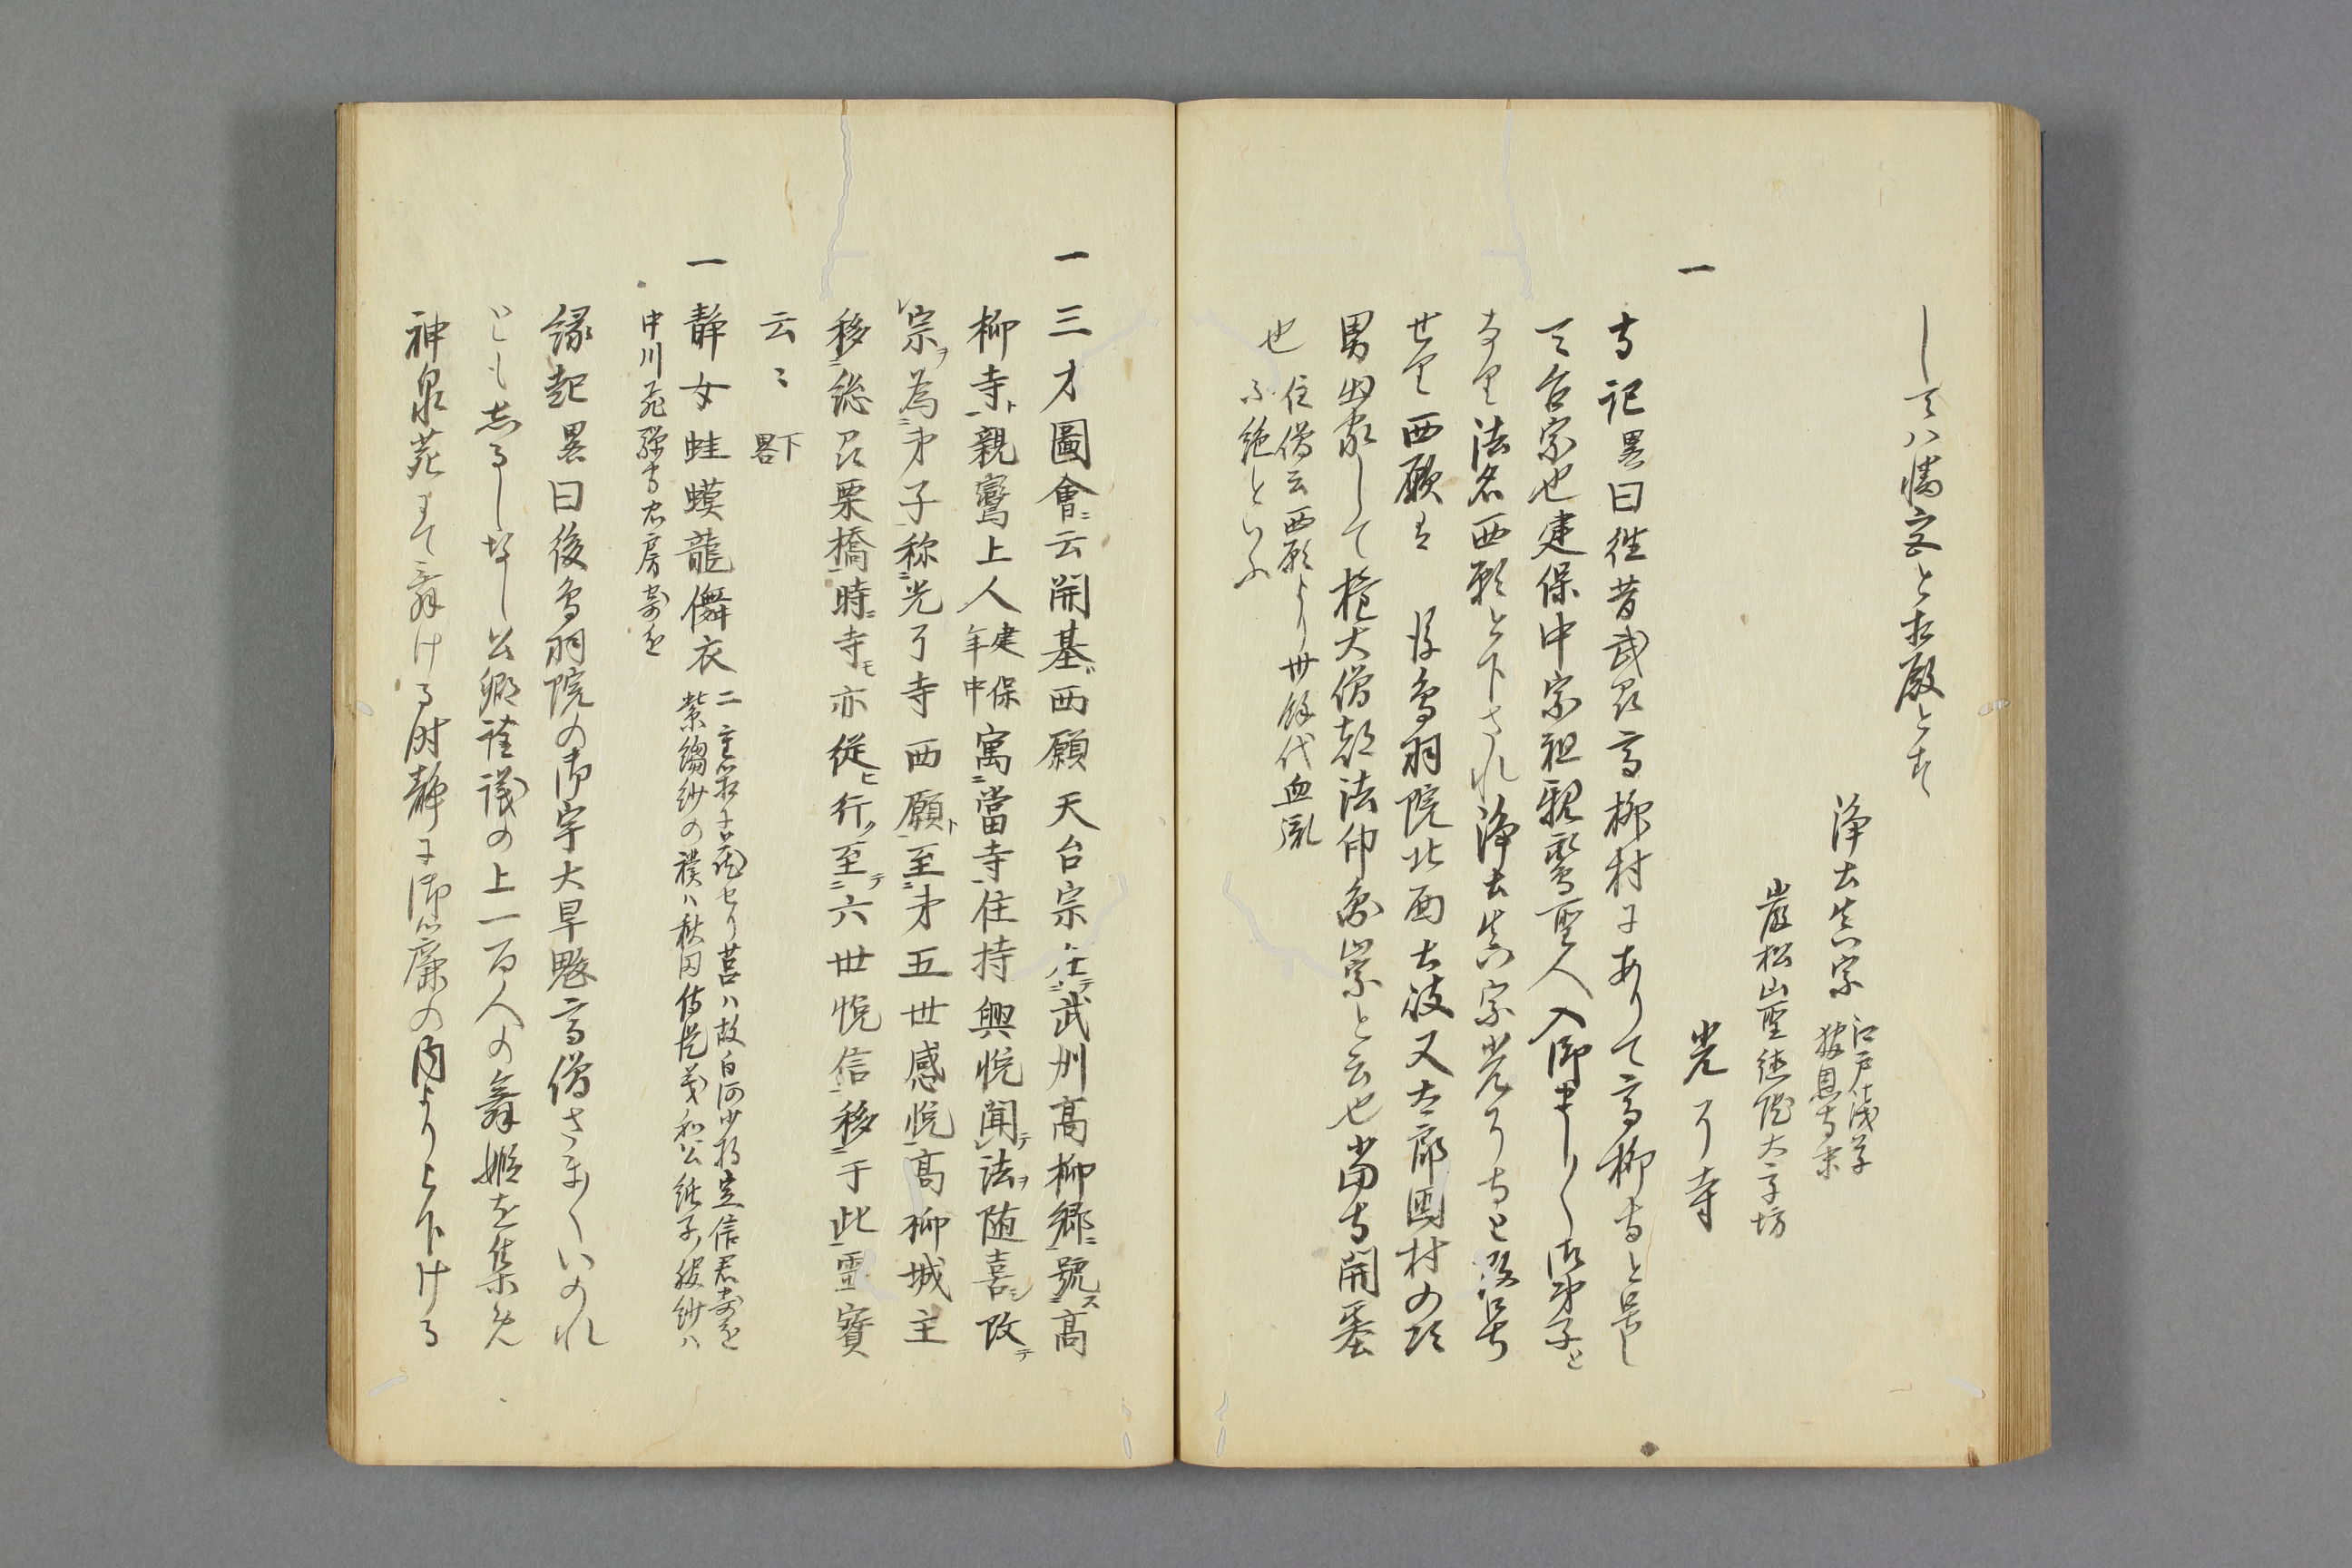 して八幡宮と相殿とす
浄土真宗 江戸浅草
報恩寺末
巌松山聖徳院大字坊
一 光了寺
寺記畧曰往昔武州高柳村にありて高柳寺と号し
天台宗也建保中宗祖親鸞聖人入御まし〳〵御弟子と
なり法名西願と下され浄土真宗光了寺と改号
せり西願は後鳥羽院北面士
男出家して権大僧都法印
と云也当寺開基
也 住僧云西願より世餘代血脈
不絶といふ
一 三才圖會ニ云開基西願天台宗 武州高柳郷ニ號ス高
柳寺ト親鸞上人建保年中寓ニ當寺住持興悦聞テ法ヲ随喜シ改テ
宗ヲ為ニ弟子称ニ光了寺西願ト至ニ第五世感悦高柳城主
移ニ総州栗橋時ニ寺モ亦従ヒ行ク至テニ六世悦信移ニ于此靈寳
云〻 下畧
一 静女蛙蟆龍儛衣 二重箱 せり莒ハ故白河少将定信君寄進
紫縐紗の襆ハ秋田侍従義和公紙子服紗ハ
中川飛騨守忠房寄進
縁起畧曰後鳥羽院の御宇大旱魃高僧さま〳〵いのれ
ともしるしなし公卿詮議の上一百人の舞姫を集め
神泉苑にて舞ける時静に御簾の内より下ける